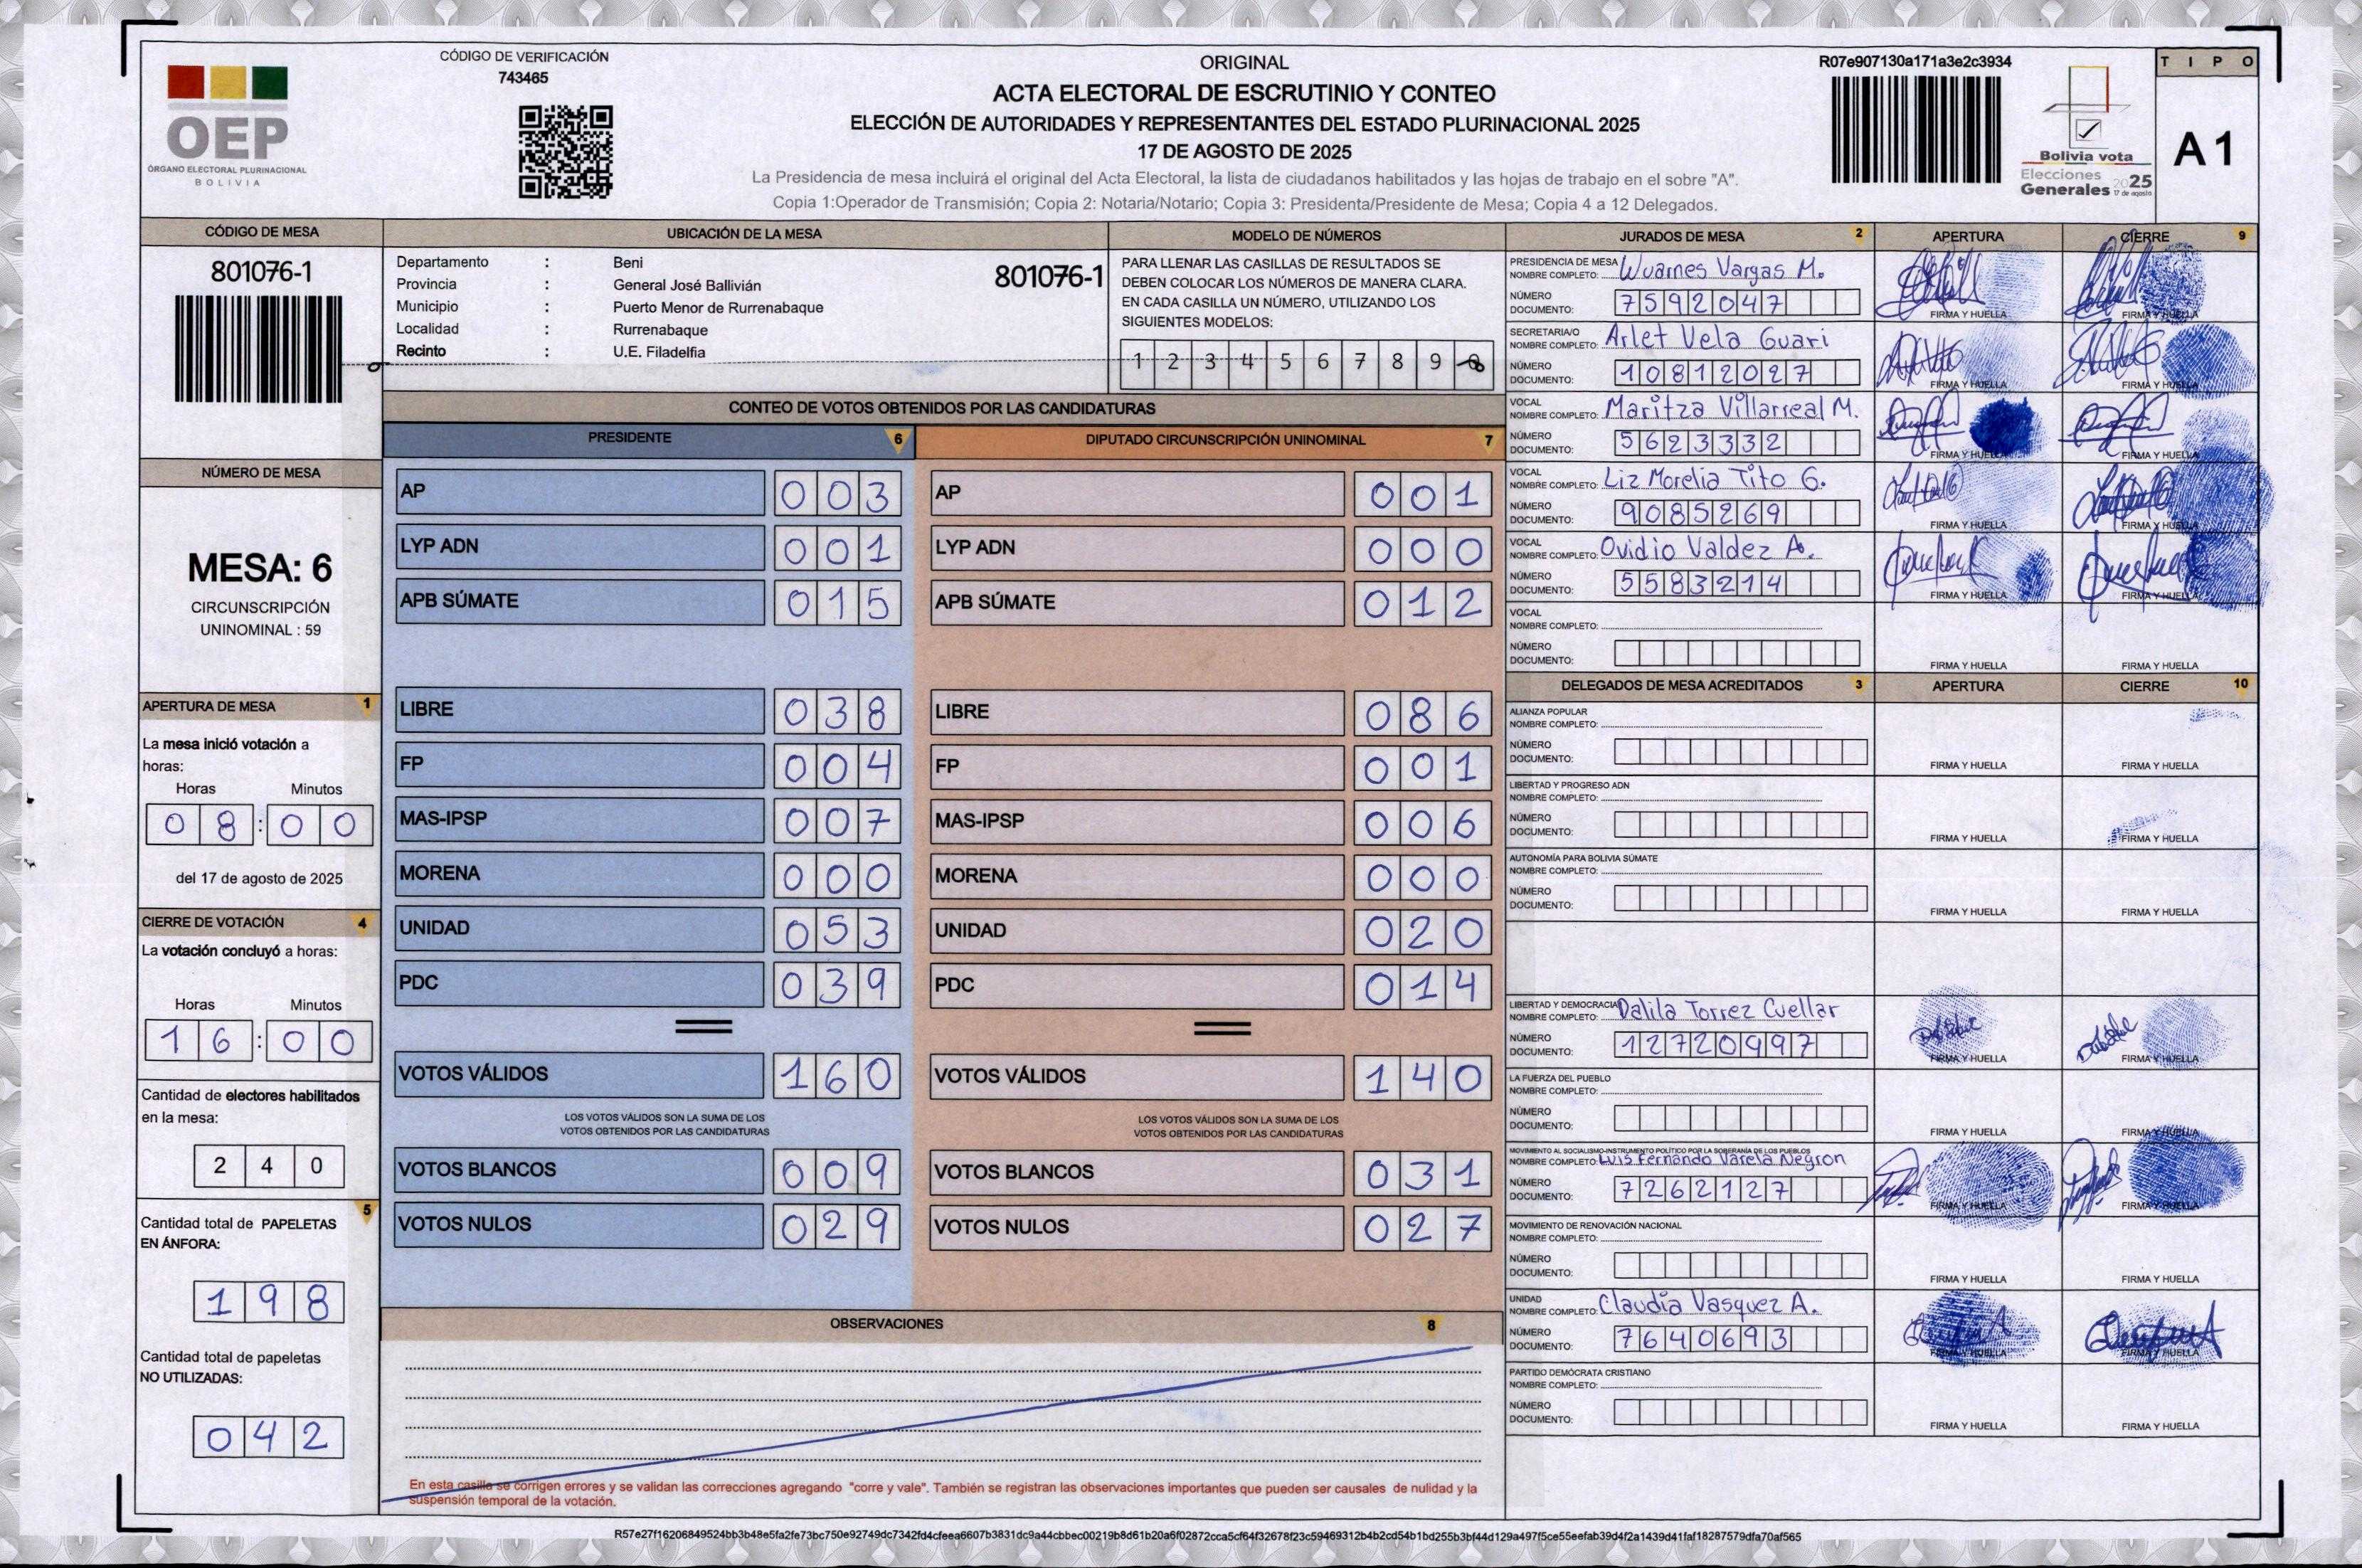 CÓDIGO DE VERIFICACIÓN
743465
OEP
ÓRGANO ELECTORAL PLURINACIONAL
BOLIVIA
ORIGINAL
ACTA ELECTORAL DE ESCRUTINIO Y CONTEO
ELECCIÓN DE AUTORIDADES Y REPRESENTANTES DEL ESTADO PLURINACIONAL 2025
17 DE AGOSTO DE 2025
La Presidencia de mesa incluirá el original del Acta Electoral, la lista de ciudadanos habilitados y las hojas de trabajo en el sobre "A".
Copia 1:Operador de Transmisión; Copia 2: Notaria/Notario; Copia 3: Presidenta/Presidente de Mesa; Copia 4 a 12 Delegados.
R07e907130a171a3e2c3934
Bolivia vota
Elecciones
Generales 2025
17 de agosto
TIPO
A1
CÓDIGO DE MESA
801076-1
UBICACIÓN DE LA MESA
Departamento : Beni
Provincia : General José Ballivián
Municipio : Puerto Menor de Rurrenabaque
Localidad : Rurrenabaque
Recinto : U.E. Filadelfia
801076-1
MODELO DE NÚMEROS
PARA LLENAR LAS CASILLAS DE RESULTADOS SE
DEBEN COLOCAR LOS NÚMEROS DE MANERA CLARA.
EN CADA CASILLA UN NÚMERO, UTILIZANDO LOS
SIGUIENTES MODELOS:
1 2 3 4 5 6 7 8 9 0
NÚMERO DE MESA
MESA: 6
CIRCUNSCRIPCIÓN
UNINOMINAL : 59
APERTURA DE MESA 1
La mesa inició votación a
horas:
Horas Minutos
08:00
del 17 de agosto de 2025
CIERRE DE VOTACIÓN 4
La votación concluyó a horas:
Horas Minutos
16:00
Cantidad de electores habilitados
en la mesa:
240
5
Cantidad total de PAPELETAS
EN ÁNFORA:
198
Cantidad total de papeletas
NO UTILIZADAS:
042
CONTEO DE VOTOS OBTENIDOS POR LAS CANDIDATURAS
PRESIDENTE 6
AP 003
LYP ADN 001
APB SÚMATE 015
LIBRE 038
FP 004
MAS-IPSP 007
MORENA 000
UNIDAD 053
PDC 039
VOTOS VÁLIDOS 160
LOS VOTOS VÁLIDOS SON LA SUMA DE LOS
VOTOS OBTENIDOS POR LAS CANDIDATURAS
VOTOS BLANCOS 009
VOTOS NULOS 029
DIPUTADO CIRCUNSCRIPCIÓN UNINOMINAL 7
AP 001
LYP ADN 000
APB SÚMATE 012
LIBRE 086
FP 001
MAS-IPSP 006
MORENA 000
UNIDAD 020
PDC 014
VOTOS VÁLIDOS 140
LOS VOTOS VÁLIDOS SON LA SUMA DE LOS
VOTOS OBTENIDOS POR LAS CANDIDATURAS
VOTOS BLANCOS 031
VOTOS NULOS 027
OBSERVACIONES 8
En esta casilla se corrigen errores y se validan las correcciones agregando "corre y vale". También se registran las observaciones importantes que pueden ser causales de nulidad y la
suspensión temporal de la votación.
JURADOS DE MESA 2 APERTURA CIERRE 9
PRESIDENCIA DE MESA
NOMBRE COMPLETO: Wuarnes Vargas M.
NÚMERO
DOCUMENTO: 7592047
FIRMA Y HUELLA FIRMA Y HUELLA
SECRETARIA/O
NOMBRE COMPLETO: Arlet Vela Guari
NÚMERO
DOCUMENTO: 10812027
FIRMA Y HUELLA FIRMA Y HUELLA
VOCAL
NOMBRE COMPLETO: Maritza Villarreal M.
NÚMERO
DOCUMENTO: 5623332
FIRMA Y HUELLA FIRMA Y HUELLA
VOCAL
NOMBRE COMPLETO: Liz Morelia Tito G.
NÚMERO
DOCUMENTO: 9085269
FIRMA Y HUELLA FIRMA Y HUELLA
VOCAL
NOMBRE COMPLETO: Ovidio Valdez A.
NÚMERO
DOCUMENTO: 5583214
FIRMA Y HUELLA FIRMA Y HUELLA
VOCAL
NOMBRE COMPLETO:
NÚMERO
DOCUMENTO:
FIRMA Y HUELLA FIRMA Y HUELLA
DELEGADOS DE MESA ACREDITADOS 3 APERTURA CIERRE 10
ALIANZA POPULAR
NOMBRE COMPLETO:
NÚMERO
DOCUMENTO:
FIRMA Y HUELLA FIRMA Y HUELLA
LIBERTAD Y PROGRESO ADN
NOMBRE COMPLETO:
NÚMERO
DOCUMENTO:
FIRMA Y HUELLA FIRMA Y HUELLA
AUTONOMÍA PARA BOLIVIA SÚMATE
NOMBRE COMPLETO:
NÚMERO
DOCUMENTO:
FIRMA Y HUELLA FIRMA Y HUELLA
LIBERTAD Y DEMOCRACIA
NOMBRE COMPLETO: Dalila Torrez Cuellar
NÚMERO
DOCUMENTO: 12720997
FIRMA Y HUELLA FIRMA Y HUELLA
LA FUERZA DEL PUEBLO
NOMBRE COMPLETO:
NÚMERO
DOCUMENTO:
FIRMA Y HUELLA FIRMA Y HUELLA
MOVIMIENTO AL SOCIALISMO-INSTRUMENTO POLÍTICO POR LA SOBERANÍA DE LOS PUEBLOS
NOMBRE COMPLETO: Luis Fernando Varela Negron
NÚMERO
DOCUMENTO: 7262127
FIRMA Y HUELLA FIRMA Y HUELLA
MOVIMIENTO DE RENOVACIÓN NACIONAL
NOMBRE COMPLETO:
NÚMERO
DOCUMENTO:
FIRMA Y HUELLA FIRMA Y HUELLA
UNIDAD
NOMBRE COMPLETO: Claudia Vasquez A.
NÚMERO
DOCUMENTO: 7640693
FIRMA Y HUELLA FIRMA Y HUELLA
PARTIDO DEMÓCRATA CRISTIANO
NOMBRE COMPLETO:
NÚMERO
DOCUMENTO:
FIRMA Y HUELLA FIRMA Y HUELLA